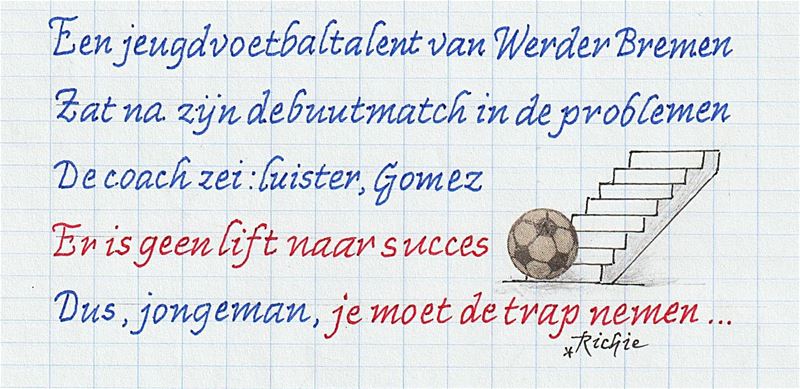 Een jeugdvoetbaltalent van Werder Bremen
Zat na zijn debuutmatch in de problemen
De coach zei: luister, Gomez
Er is geen lift naar succes
Dus, jongeman, je moet de trap nemen ...
*Richie